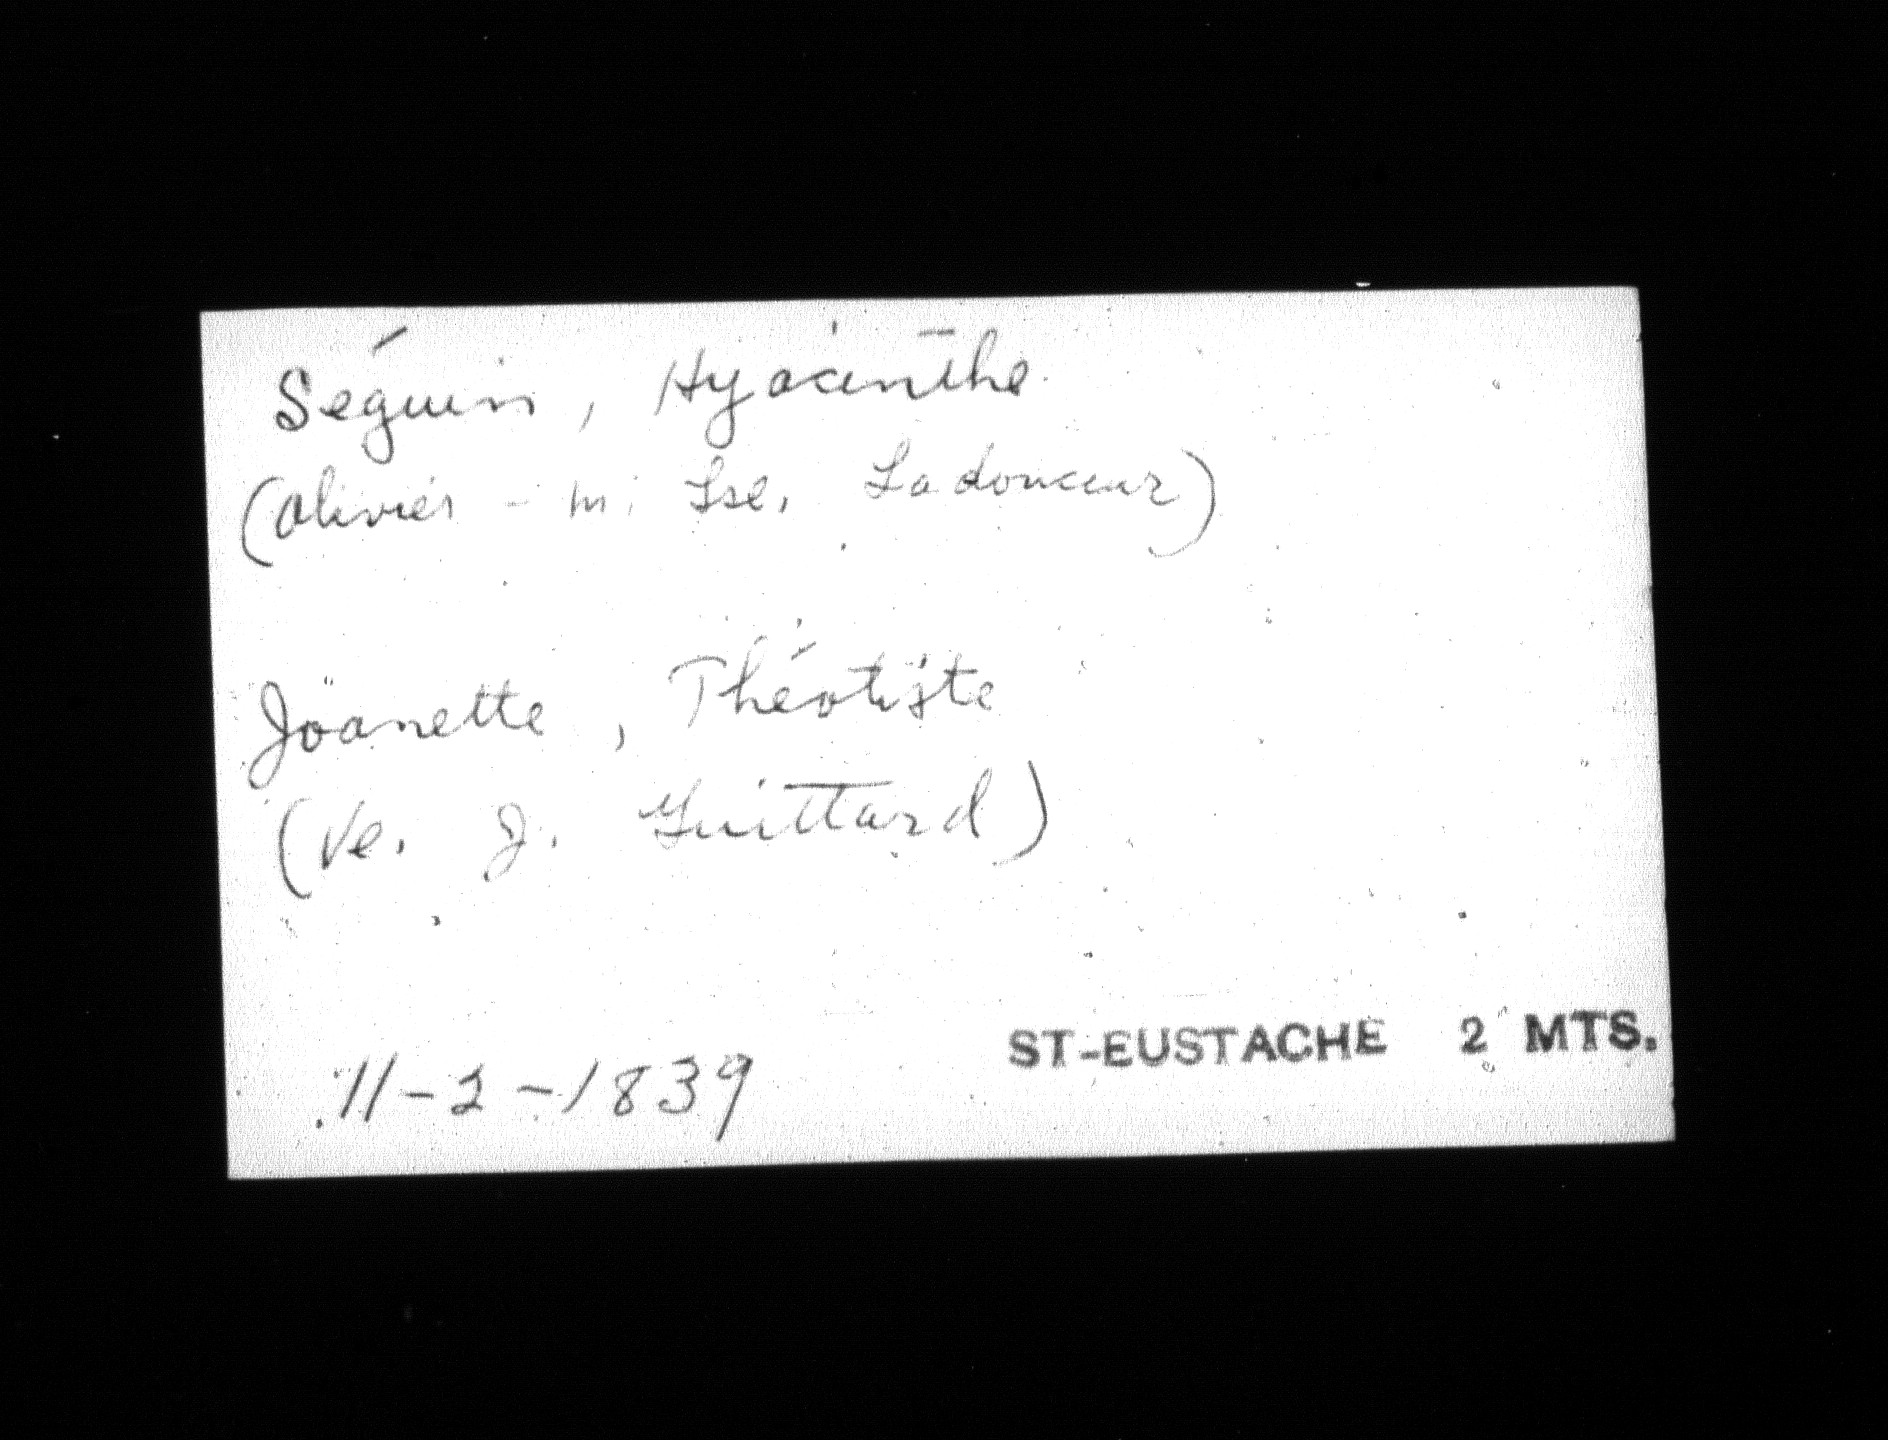 Séguin, Hyacinthe
(Olivier - m: Lse. Ladouceur)
Joanette, Théotiste
(Ve. J. Guittard)
11-2-1839
ST-EUSTACHE 2 MTS.